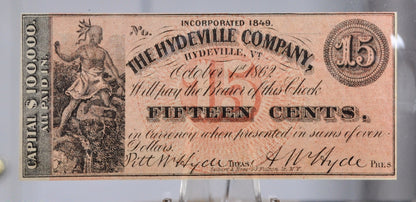 INCORPORATED 1849.
No.
THE HYDEVILLE COMPANY,
HYDEVILLE, VT
October 1st 1862
15
Will pay the Bearer of this Check
15
FIFTEEN CENTS,
in Currency when presented in sums of even
Dollars.
Pitt W Hyde TREAS. A W Hyde PRES.
CAPITAL $100,000.
All PAID IN.